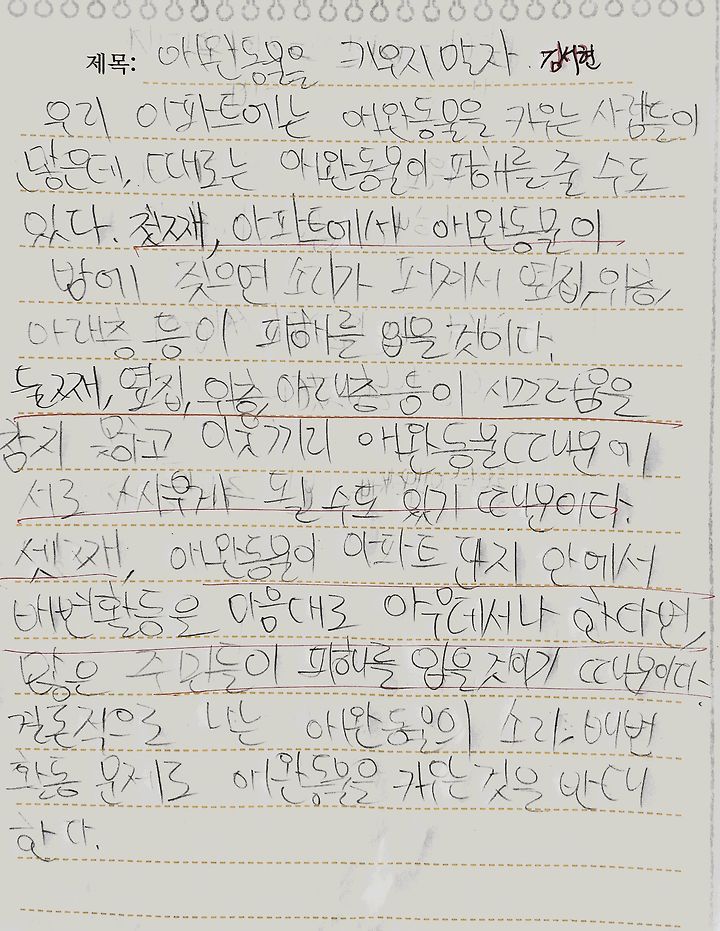 제목: 애완동물을 키우지 말자. 김서현
우리 아파트에는 애완동물을 키우는 사람들이
많은데, 때로는 애완동물이 피해를 줄 수도
있다. 첫째, 아파트에서 애완동물이
밤에 짖으면 소리가 퍼져서 옆집, 위층,
아래층 등이 피해를 입을 것이다.
둘째, 옆집, 위층, 아래층 등이 시끄러움을
참지 못하고 이웃끼리 애완동물 때문에
서로 싸우게 될 수도 있기 때문이다.
셋째, 애완동물이 아파트 단지 안에서
배변활동을 마음대로 아무데서나 한다면,
많은 주민들이 피해를 입을 것이기 때문이다.
결론적으로 나는 애완동물의 소리, 배변
활동 문제로 애완동물을 키우는 것을 반대
한다.